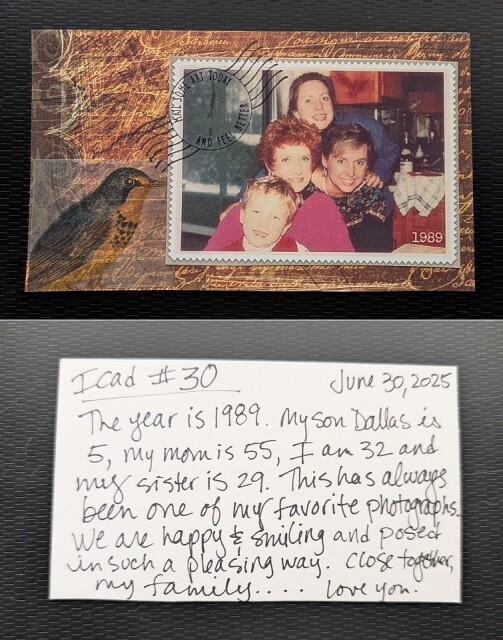 MAKE SOME ART TODAY
AND FEEL BETTER
1989
Icad #30
June 30, 2025
The year is 1989. My son Dallas is
5, my mom is 55, I am 32 and
my sister is 29. This has always
been one of my favorite photographs.
We are happy & smiling and posed
in such a pleasing way. Close together,
my family.... love you.